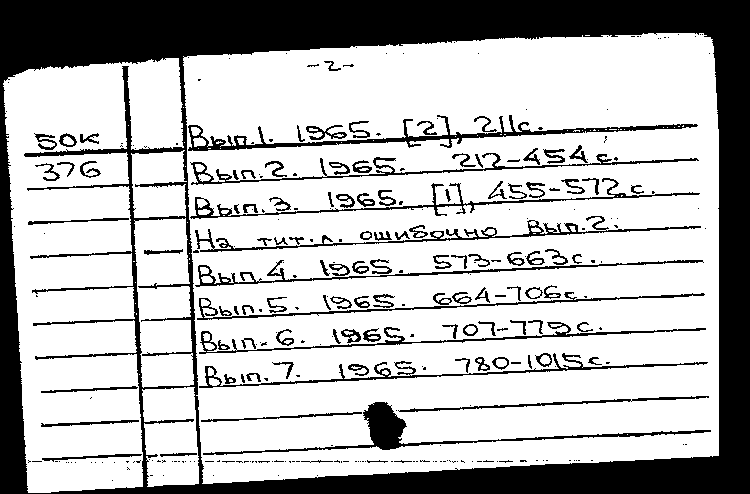 -2-
50К Вып.1. 1965. [2], 211с.
376 Вып.2. 1965. 212-454с.
Вып.3. 1965. [1], 455-572с.
На тит.л. ошибочно Вып.2.
Вып.4. 1965. 573-663с.
Вып.5. 1965. 664-706с.
Вып.6. 1965. 707-779с.
Вып.7. 1965. 780-1015с.